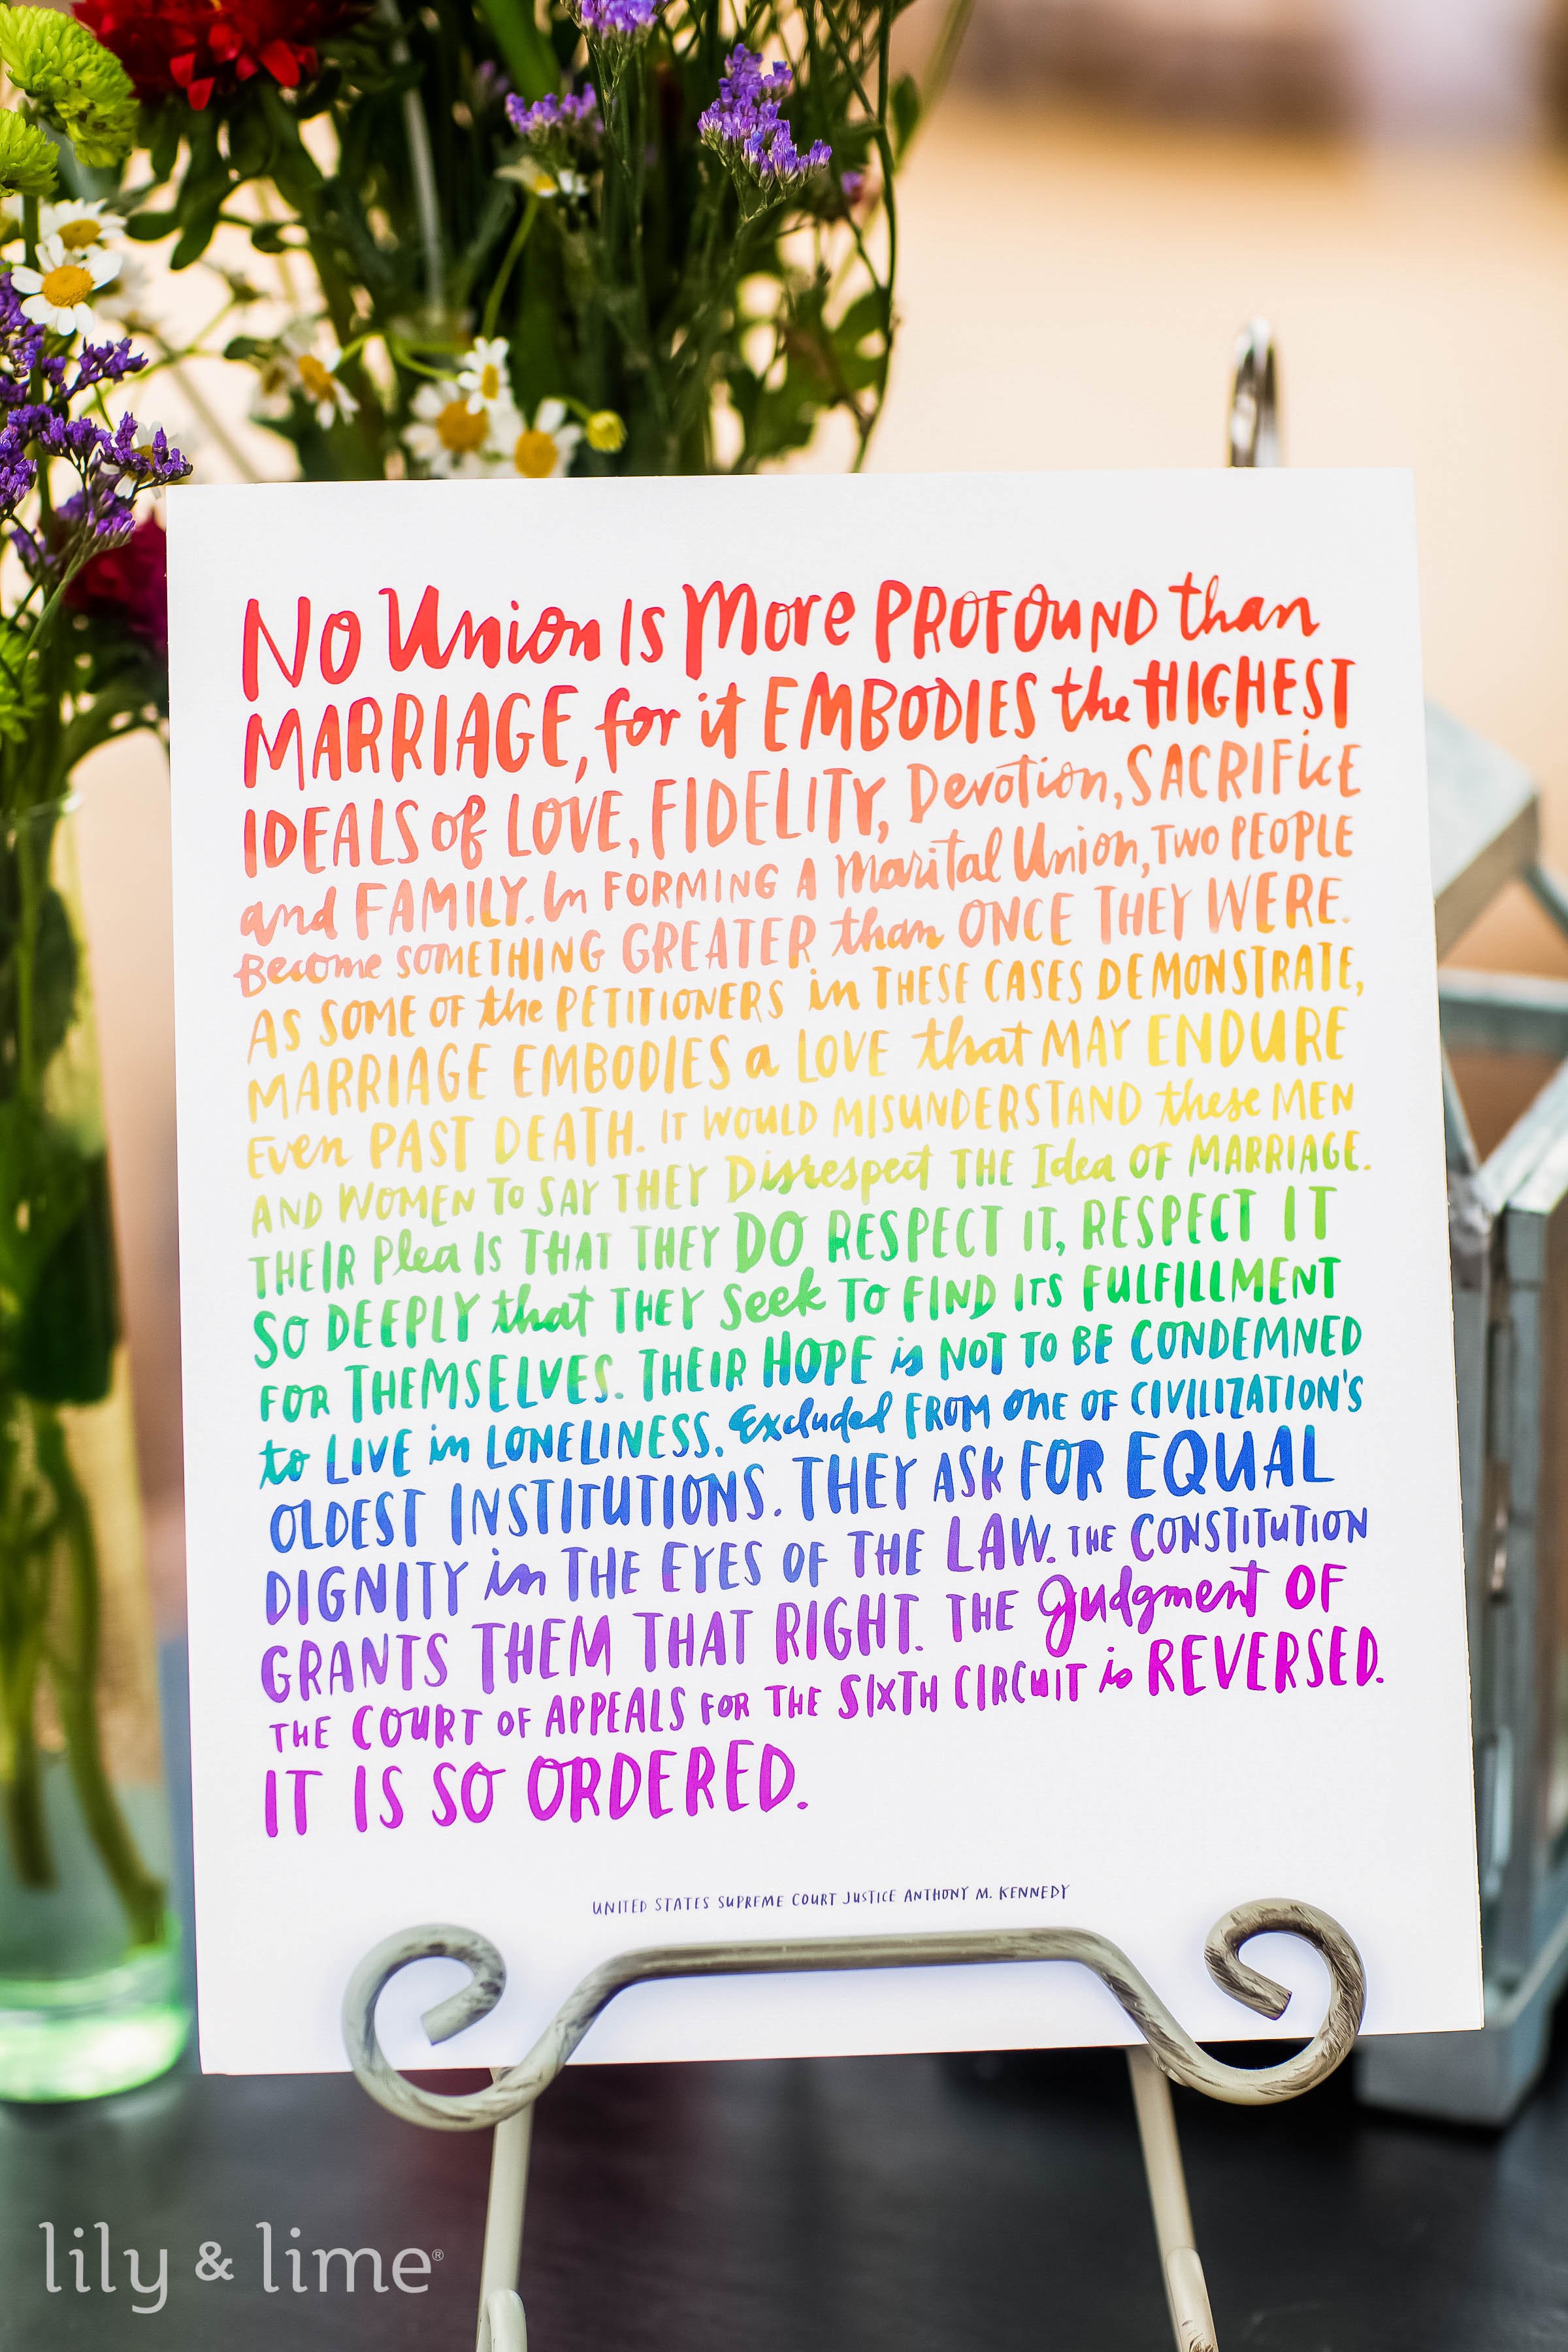 No Union Is More PROFOUND than
MARRIAGE, for it EMBODIES the HIGHEST
IDEALS of LOVE, FIDELITY, Devotion, SACRIFICE
and FAMILY. In FORMING A Marital Union, TWO PEOPLE
Become SOMETHING GREATER than ONCE THEY WERE.
AS SOME OF the PETITIONERS in THESE CASES DEMONSTRATE,
MARRIAGE EMBODIES a LOVE that MAY ENDURE
Even PAST DEATH. IT WOULD MISUNDERSTAND these MEN
AND WOMEN TO SAY THEY Disrespect THE Idea OF MARRIAGE.
THEIR Plea IS THAT THEY DO RESPECT IT, RESPECT IT
SO DEEPLY that THEY Seek TO FIND ITS FULFILLMENT
FOR THEMSELVES. THEIR HOPE is NOT TO BE CONDEMNED
to LIVE in LONELINESS, Excluded FROM ONE OF CIVILIZATION'S
OLDEST INSTITUTIONS. THEY ASK FOR EQUAL
DIGNITY in THE EYES OF THE LAW. THE CONSTITUTION
GRANTS THEM THAT RIGHT. THE Judgment OF
THE COURT OF APPEALS FOR THE SIXTH CIRCUIT is REVERSED.
IT IS SO ORDERED.
UNITED STATES SUPREME COURT JUSTICE ANTHONY M. KENNEDY
lily & lime®